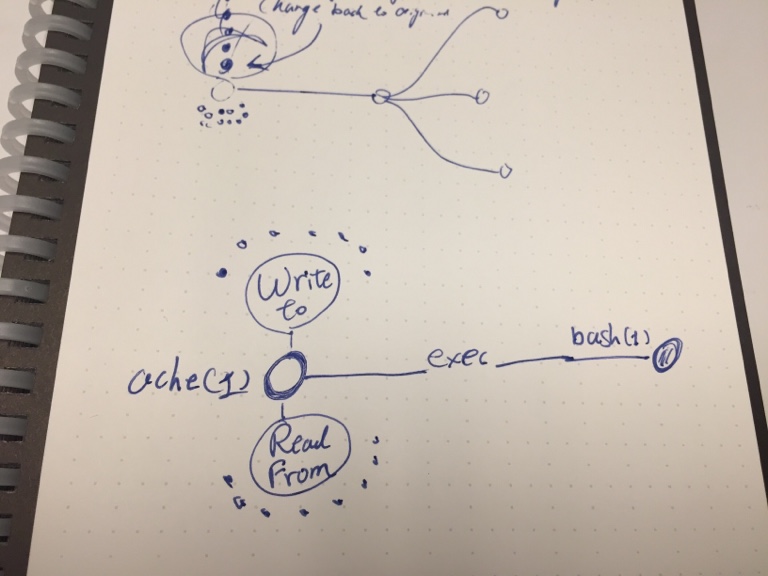 Change back to
Write
to
bash(1)
exec
ache(1)
Read
From